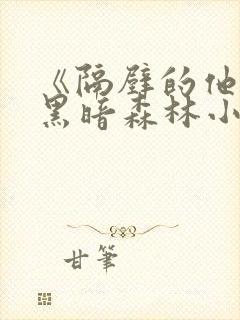 《隔壁的他
黑暗森林小
甘笔